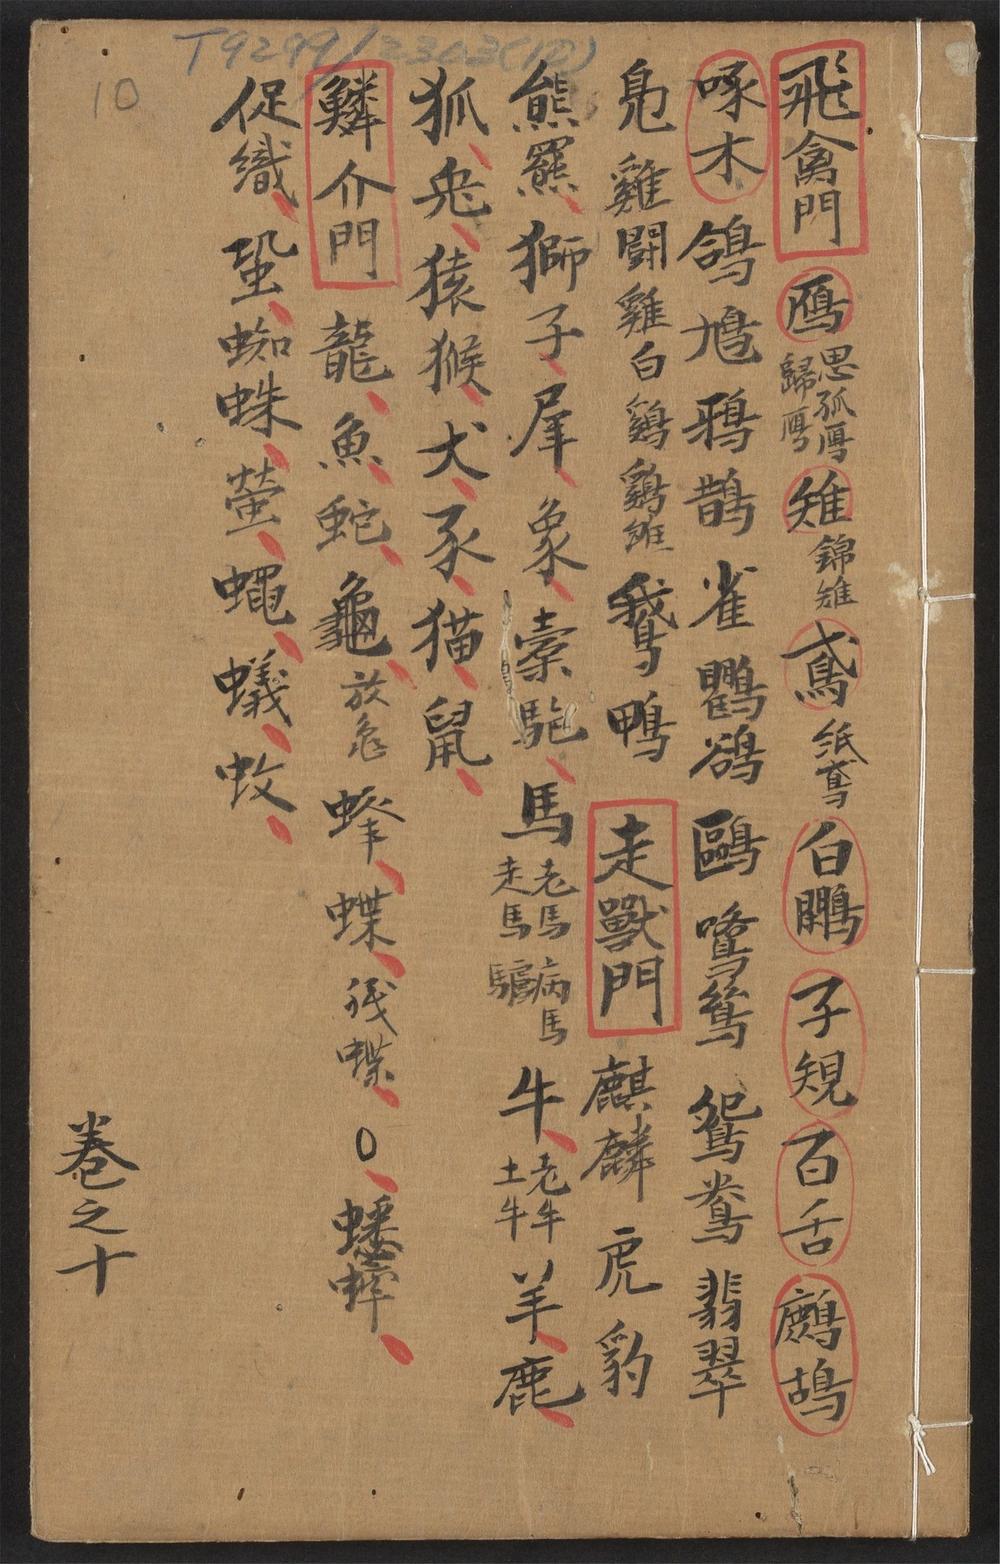 T9299/3303(10)
10
飛禽門 鴈 思孤鴈 歸鴈 雉 錦雉 鳶 紙鳶 白鷴 子規 百舌 鷓鴣
啄木 鴿 鳩 鴉 鵲 雀 鸜鵒 鷗 鷺鷥 鴛鴦 翡翠
鳧 雞 鬪雞 白鷄 鷄雛 鵞 鴨 走獸門 麒麟 虎 豹
熊羆 獅子 犀 象 橐駞 馬 老馬 走馬 病馬 驢 牛 老牛 土牛 羊 鹿
狐 兔 猿 猴 犬 豕 猫 鼠
鱗介門 龍 魚 蛇 龜 放龜 蜂 蝶 蟋蟀
促織 蛩 蜘蛛 螢 蠅 蟻 蚊
卷之十